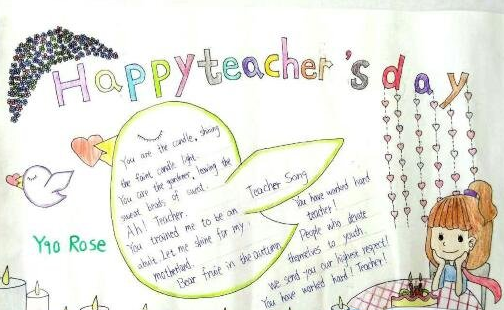 Happy teacher's day
You are the candle, shining
the faint candle light.
You are the gardener, leaving the
sweat beads of sweat.
Ah! Teacher.
You trained me to be an
adult. Let me shine for my
motherland.
Bear fruie in the autumn
Teacher Song
You have worked hard
teacher!
People who devate
themselves to youth.
we send you our highest respect!
You have worked hard! Teacher!
Yao Rose